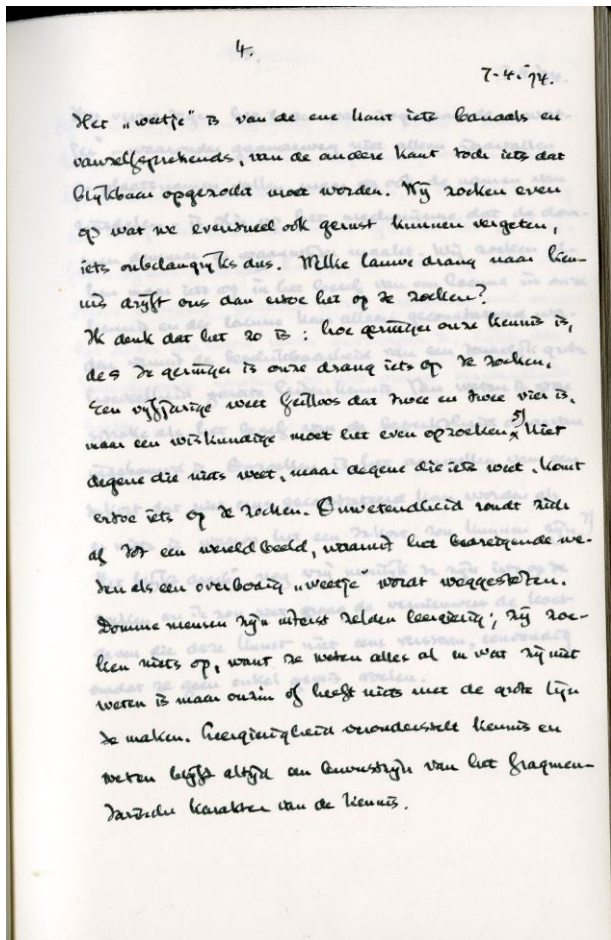 4.
7-4-'74.
Het „weetje” is van de ene kant iets banaals en
vanzelfsprekends, van de andere kant toch iets dat
blijkbaar opgezocht moet worden. Wij zoeken even
op wat we eventueel ook gerust kunnen vergeten,
iets onbelangrijks dus. Welke lauwe drang naar ken-
nis drijft ons dan ertoe het op te zoeken?
Ik denk dat het zo is: hoe geringer onze kennis is,
des te geringer is onze drang iets op te zoeken.
Een vijfjarige weet feilloos dat twee en twee vier is,
maar een wiskundige moet het even opzoeken. 5) Niet
degene die niets weet, maar degene die iets weet, komt
ertoe iets op te zoeken. Onwetendheid rondt zich
af tot een wereldbeeld, waaruit het bedreigende we-
ten als een overbodig „weetje” wordt weggestoten.
Domme mensen zijn uiterst zelden leergierig, zij zoe-
ken niets op, want ze weten alles al en wat zij niet
weten is maar onzin of heeft niets met de grote lijn
te maken. Leergierigheid veronderstelt kennis en
weten blijft altijd een bewustzijn van het fragmen-
tarische karakter van de kennis.